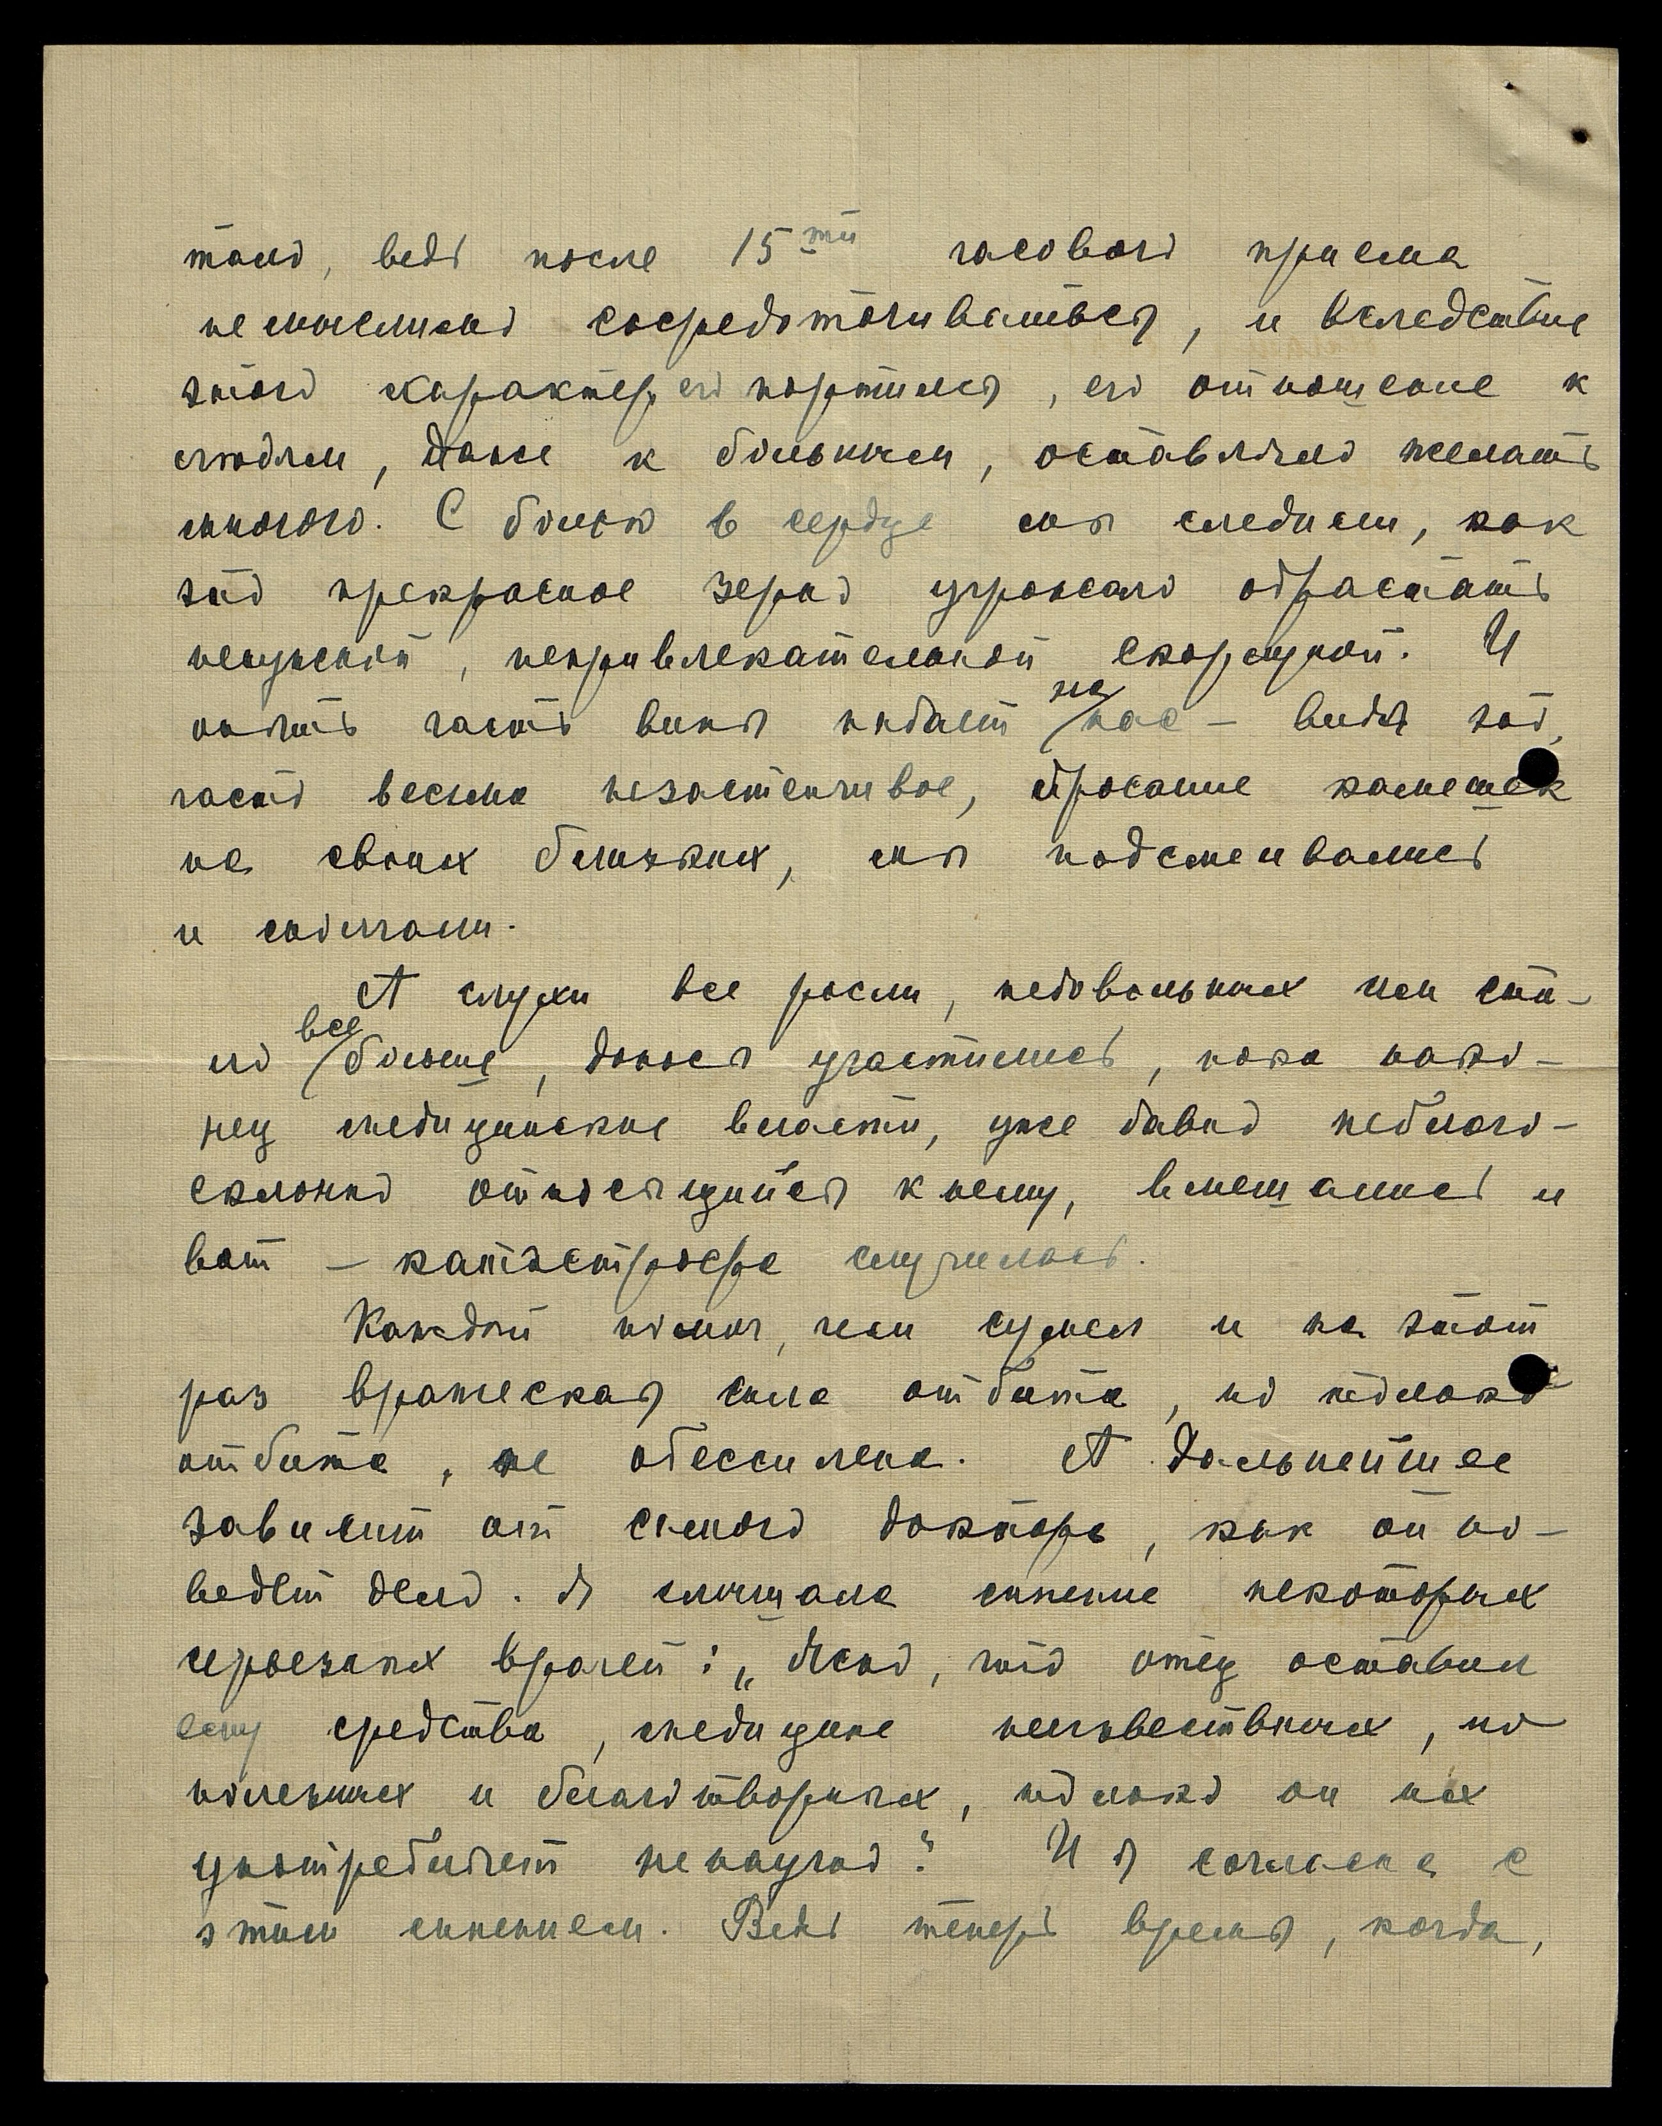 тало, ведь после 15ти часового приема
немыслимо сосредотачиваться, и вследствие
этого характер его портился, его отношение к
людям, даже к больным, оставляло желать
многого. С болью в сердце мы следим, как
это прекрасное зерно угрожало обрастать
ненужной, непривлекательной скорлупой. И
опять часть вины падает на нас – видя это,
часто весьма незастенчивое, бросание камешек
на своих близких, мы подсмеивались
и смолчали.
А слухи все росли, недовольных им ста-
ло все больше, доносы участились, пока нако-
нец медицинские власти, уже давно неблаго-
склонно относящийся к нему, вмешались и
вот – катастрофа случилась.
Каждый помог, чем сумел и на этот
раз вражеская сила отбита, но только
отбита, не обессилена. А дальнейшее
зависит от самого доктора, как он по-
ведет дело. Я слышала мнение некоторых
серьезных врачей: „Ясно, что отец оставил
ему средства, медицине неизвестных, но
полезных и благотворных, только он их
употребляет ненаучно". И я согласна с
этим мнением. Ведь теперь время, когда,